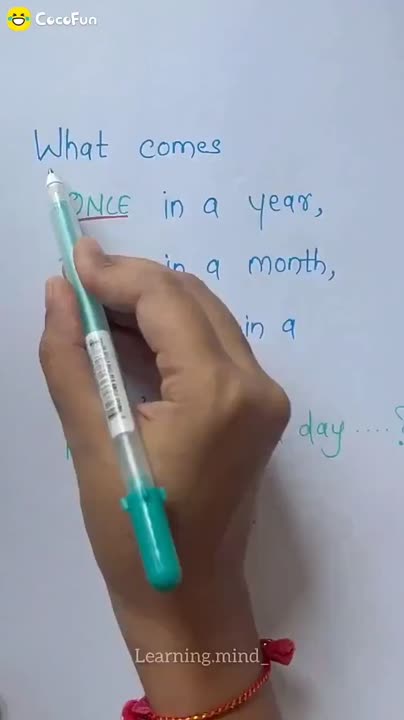 CocoFun
What comes
ONCE in a year,
in a month,
in a
day ....?
Learning.mind_